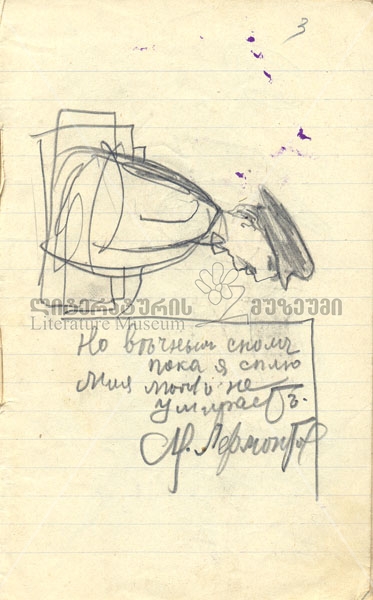 3
ლიტერატურის მუზეუმი
Literature Museum
Но вѣчным сномъ
пока я сплю
Моя любовь не
умираетъ.
М. Лермонтов